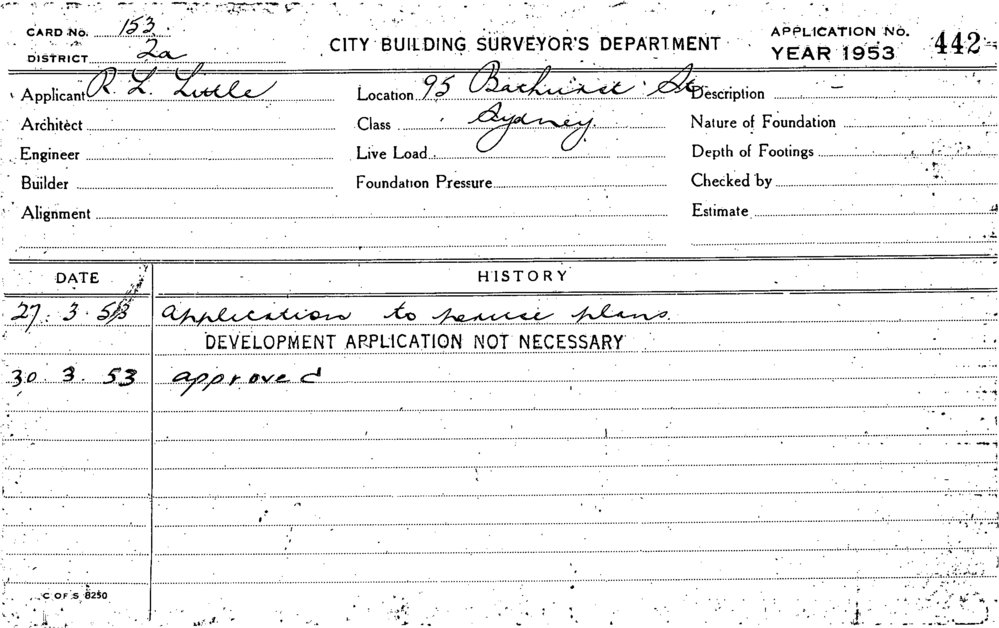 CARD No. 153.
DISTRICT 2a
CITY BUILDING SURVEYOR'S DEPARTMENT
APPLICATION No. 442
YEAR 1953
Applicant R. L. Little
Location 95 Bathurst St.
Description -
Architect
Class Sydney.
Nature of Foundation
Engineer
Live Load
Depth of Footings
Builder
Foundation Pressure
Checked by
Alignment
Estimate
DATE HISTORY
27. 3. 53 application to peruse plans.
DEVELOPMENT APPLICATION NOT NECESSARY
30. 3. 53 approved
C OF S 8250